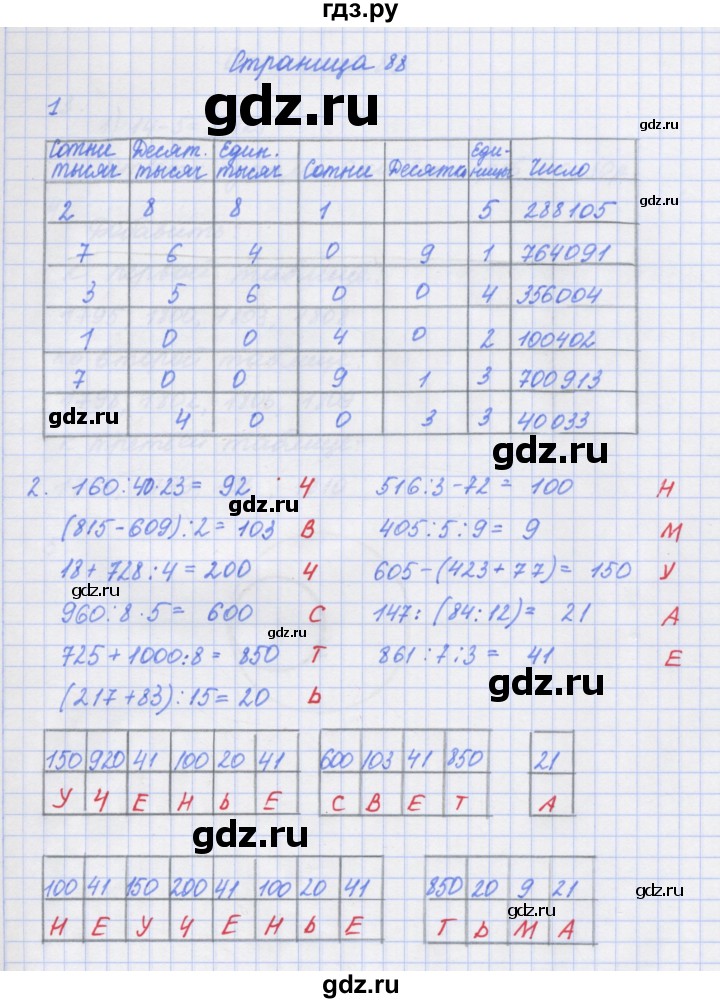 гдз.ру
Страница 88
1
gdz.ru
Сотни тысяч Десят. тысяч Един. тысяч Сотни Десятки Единицы Число
2 8 8 1 5 288105
7 6 4 0 9 1 764091
3 5 6 0 0 4 356004
1 0 0 4 0 2 100402
7 0 0 9 1 3 700913
gdz.ru
4 0 0 3 3 40033
gdz.ru
2. 160:40·23= 92 Ч 516:3-72= 100 Н
gdz.ru
(815-609):2=103 В 405:5:9= 9 М
18+728:4=200 Ч 605-(423+77)= 150 У
gdz.ru
960:8·5= 600 С 147:(84:12)= 21 А
gdz.ru
725+1000:8=850 Т 861:7:3= 41 Е
gdz.ru
(217+83):15=20 Ь
150 920 41 100 20 41 600 103 41 850 21
У Ч Е Н Ь Е С В Е Т А
gdz.ru
100 41 150 200 41 100 20 41 850 20 9 21
gdz.ru
Н Е У Ч Е Н Ь Е Т Ь М А
gdz.ru
gdz.ru